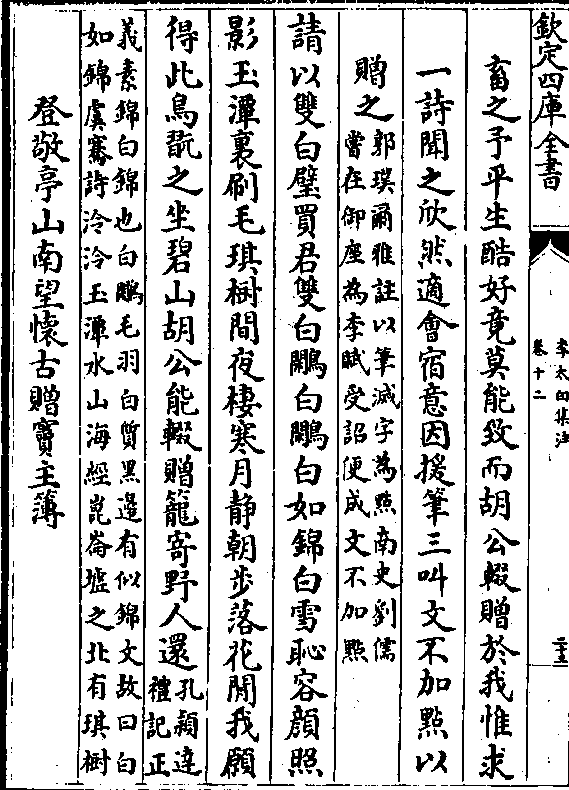 欽定四庫全書
李太白集注
卷十二
二十三
畜之予平生酷好竟莫能致而胡公輟贈於我惟求
一詩聞之欣然適會宿意因援筆三叫文不加點以
贈之
郭璞爾雅註以筆滅字為點南史劉儒
嘗在御座為李賦受詔便成文不加點
請以雙白璧買君雙白鷴白鷴白如錦白雪恥容顏照
影玉潭裏刷毛琪樹間夜棲寒月静朝步落花閒我願
得此鳥翫之坐碧山胡公能輟贈籠寄野人還
孔穎達
禮記正
義素錦白錦也白鷴毛羽白質黑邊有似錦文故曰白
如錦虞騫詩泠泠玉潭水山海經崑崙墟之北有琪樹
登敬亭山南望懷古贈竇主簿